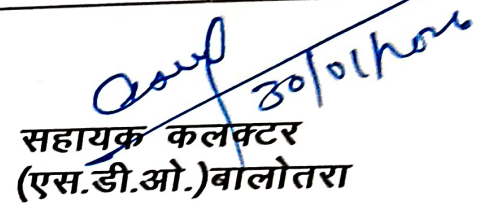 30/01/2026
सहायक कलक्टर
(एस.डी.ओ.)बालोतरा